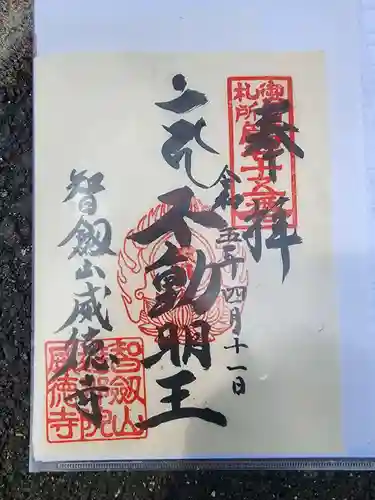 奉拝
御札所
令和五年四月十一日
不動明王
智劔山威徳寺
智劔山
威徳寺